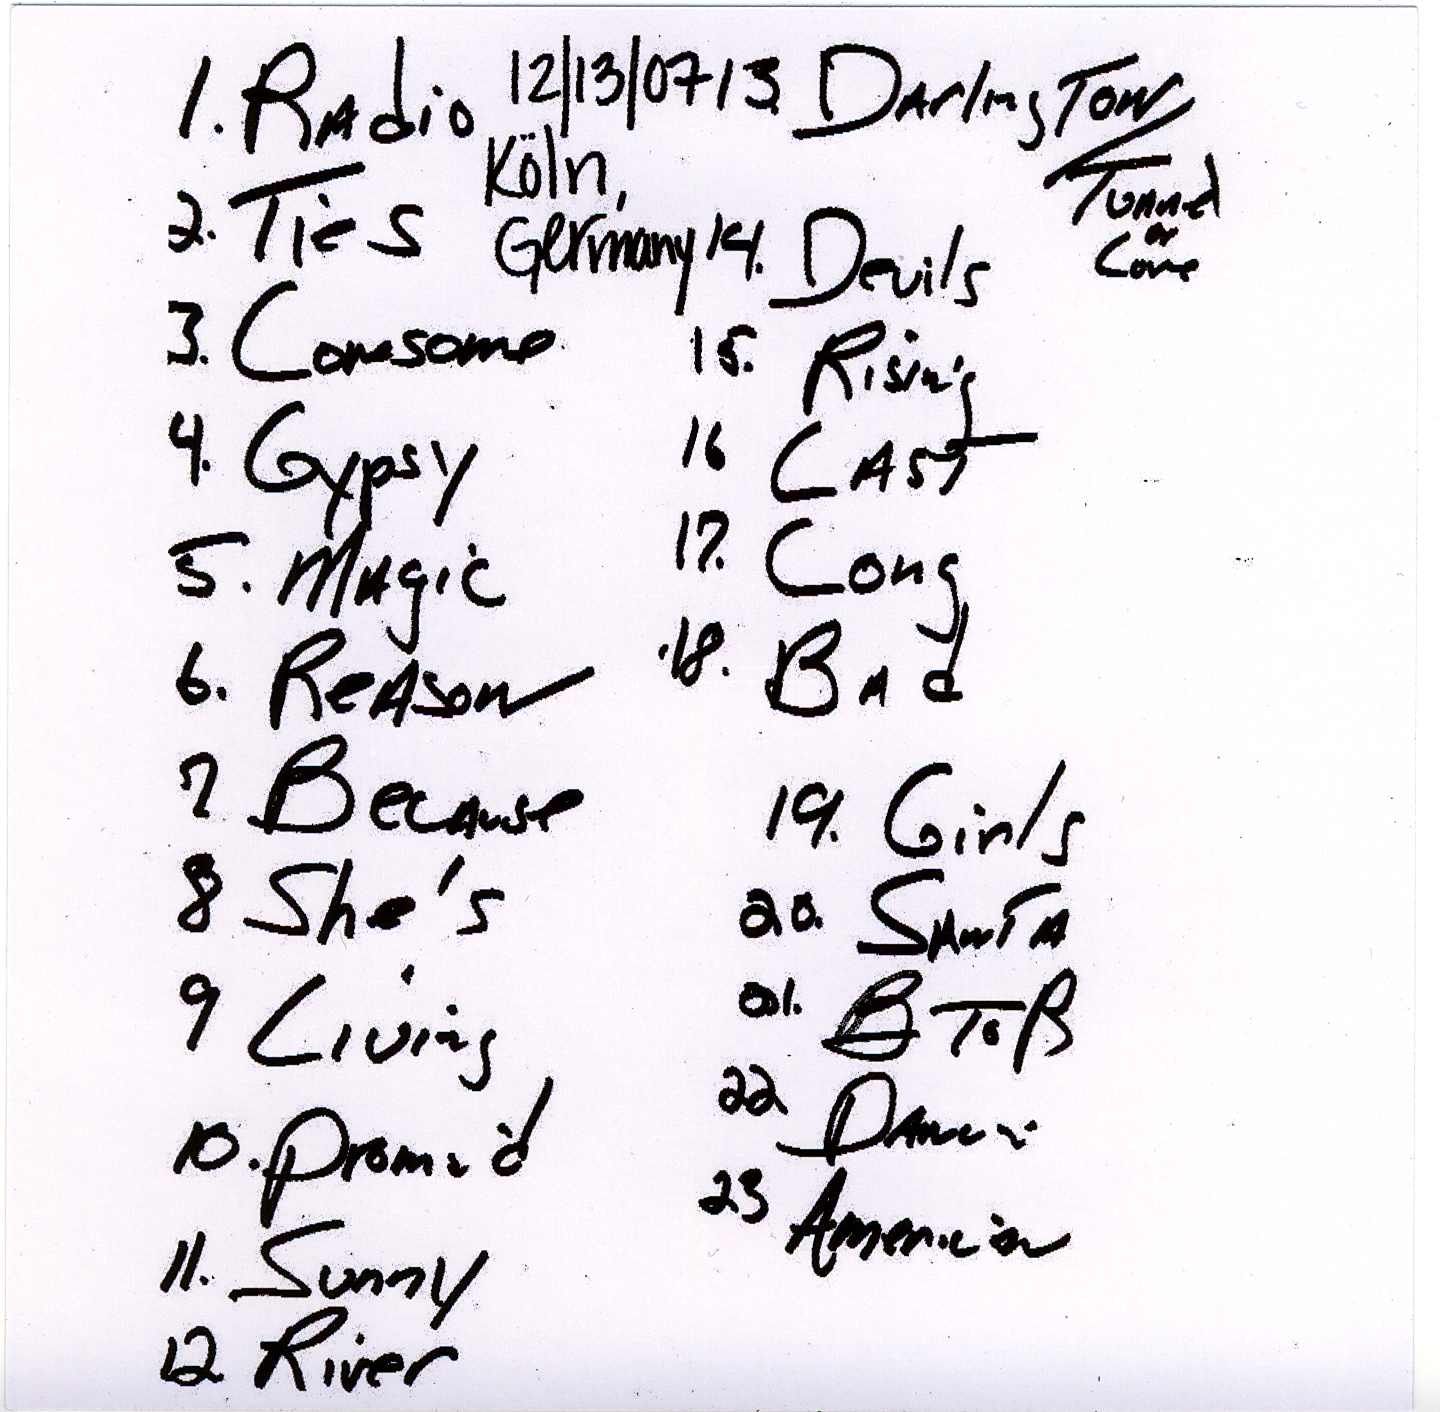 1. Radio
12/13/07
Köln,
Germany
2. Ties
3. Lonesome
4. Gypsy
5. Magic
6. Reason
7 Because
8 She's
9 Living
10. Prom
11. Sunny
12. River
13. Darlington
Tunnel
or
Love
14. Devils
15. Rising
16 LAST
17. Long
18. Bad
19. Girls
20. Santa
21. B to R
22.
23 American